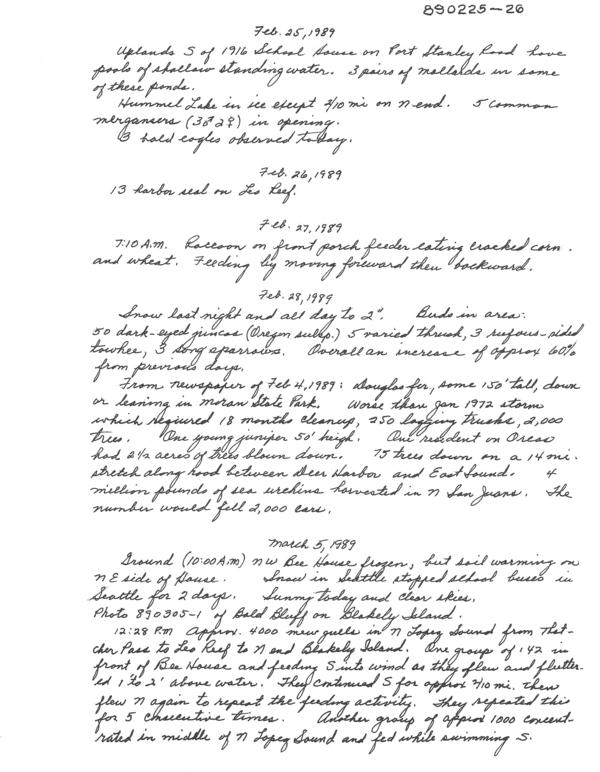 890225-26
Feb. 25, 1989
Uplands S of 1916 School House on Port Stanley Road have
pools of shallow standing water. 3 pairs of mallards in some
of these ponds.
Hummel Lake in ice except 2/10 mi on N end. 5 common
mergansers (3♂ 2♀) in opening.
3 bald eagles observed today.
Feb. 26, 1989
13 harbor seal on Leo Reef.
Feb. 27, 1989
7:10 A.M. Raccoon on front porch feeder eating cracked corn
and wheat. Feeding by moving forward then backward.
Feb. 28, 1989
Snow last night and all day to 2". Birds in area:
50 dark-eyed juncos (Oregon subsp.) 5 varied thrush, 3 rufous-sided
towhee, 3 song sparrows. Overall an increase of approx 60%
from previous days.
From newspaper of Feb 4, 1989: Douglas fir, some 150' tall, down
or leaning in Moran State Park. Worse than Jan 1972 storm
which required 18 months cleanup, 250 logging trucks, 2,000
trees. One young juniper 50' heigh. One resident on Orcas
had 2 1/2 acres of trees blown down. 75 trees down on a 14 mi.
stretch along road between Deer Harbor and East Sound. 4
million pounds of sea urchins harvested in N San Juans. The
number would fill 2,000 cars.
March 5, 1989
Ground (10:00 A.M) NW Bee House frozen, but soil warming on
NE side of House. Snow in Seattle stopped school buses in
Seattle for 2 days. Sunny today and clear skies.
Photo 890305-1 of Bald Bluff on Blakely Island.
12:28 P.M Approx. 4000 mew gulls in N Lopez Sound from That-
cher Pass to Leo Reef to N end Blakely Island. One group of 142 in
front of Bee House and feeding S into wind as they flew and flutter-
ed 1 to 2' above water. They continued S for approx 2/10 mi. then
flew N again to repeat the feeding activity. They repeated this
for 5 consecutive times. Another group of approx 1000 concent-
rated in middle of N Lopez Sound and fed while swimming S.